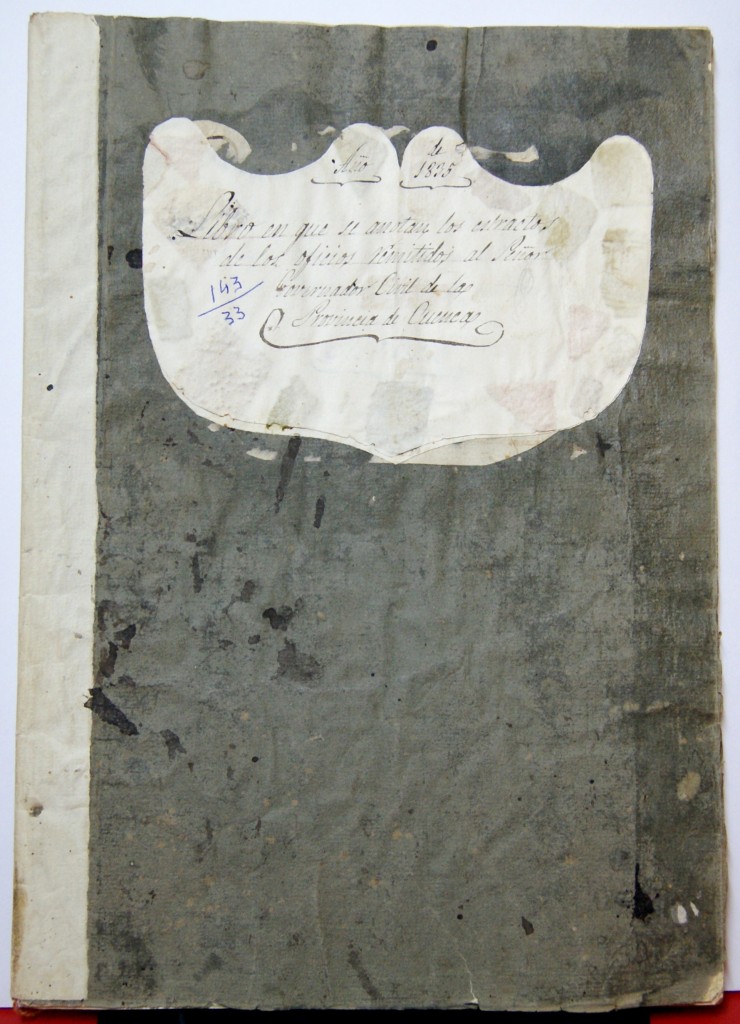 Año de 1835
Libro en que se anotan los estractos
de los oficios remitidos al Señor
Governador Civil de la
Provincia de Cuenca
143
33